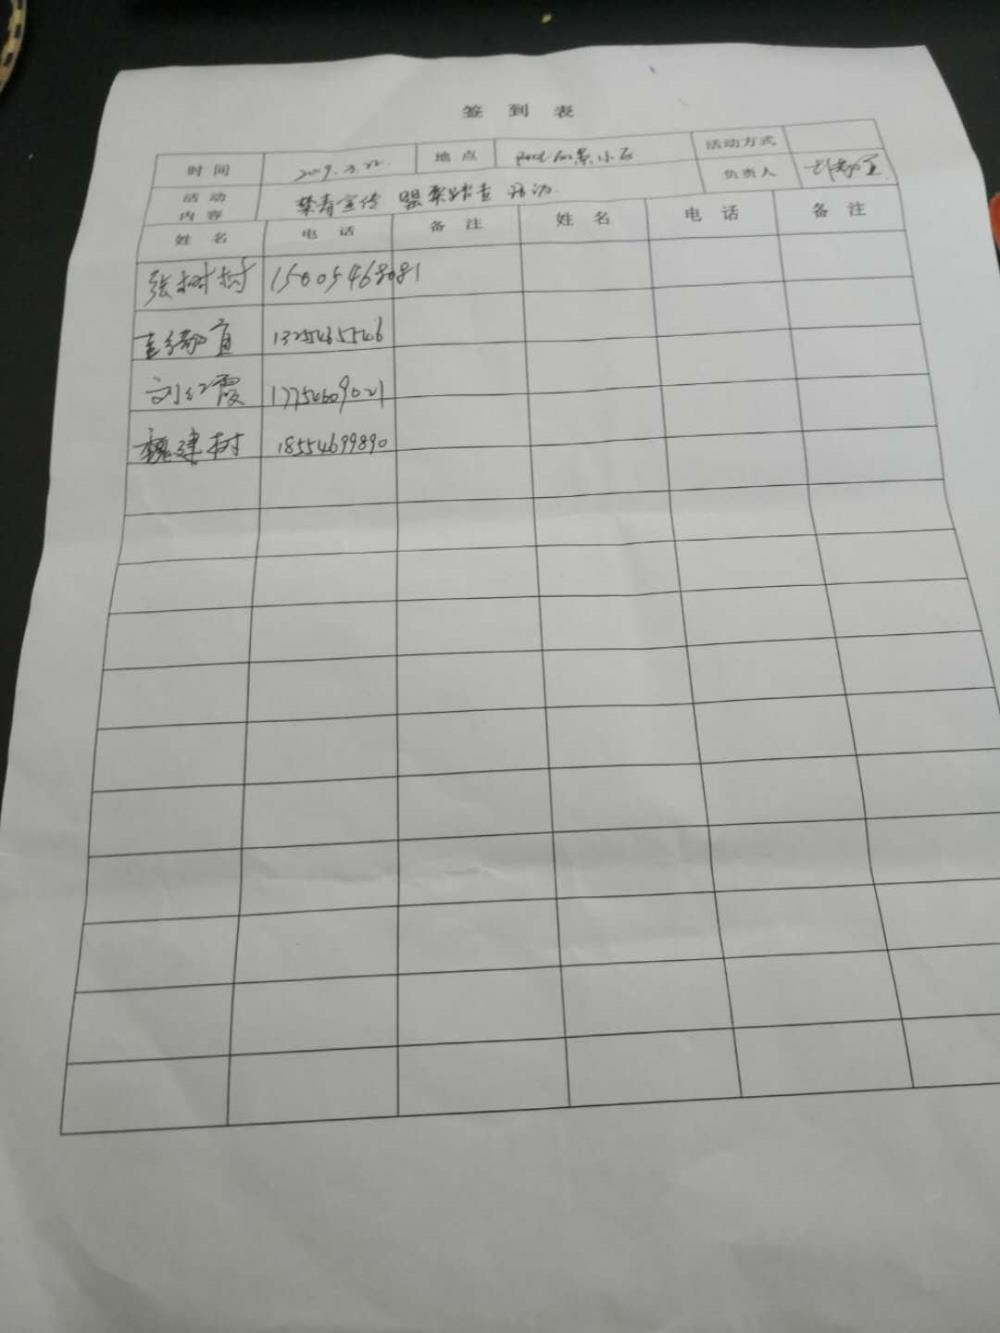 签 到 表
时 间 2019.3.22. 地 点 小区 活动方式
活 动 内 容 禁毒宣传 罂粟踏查 活动 负责人
姓 名 电 话 备 注 姓 名 电 话 备 注
张树树 15005468081
13254655746
刘红霞 17754609021
魏建树 18554699890